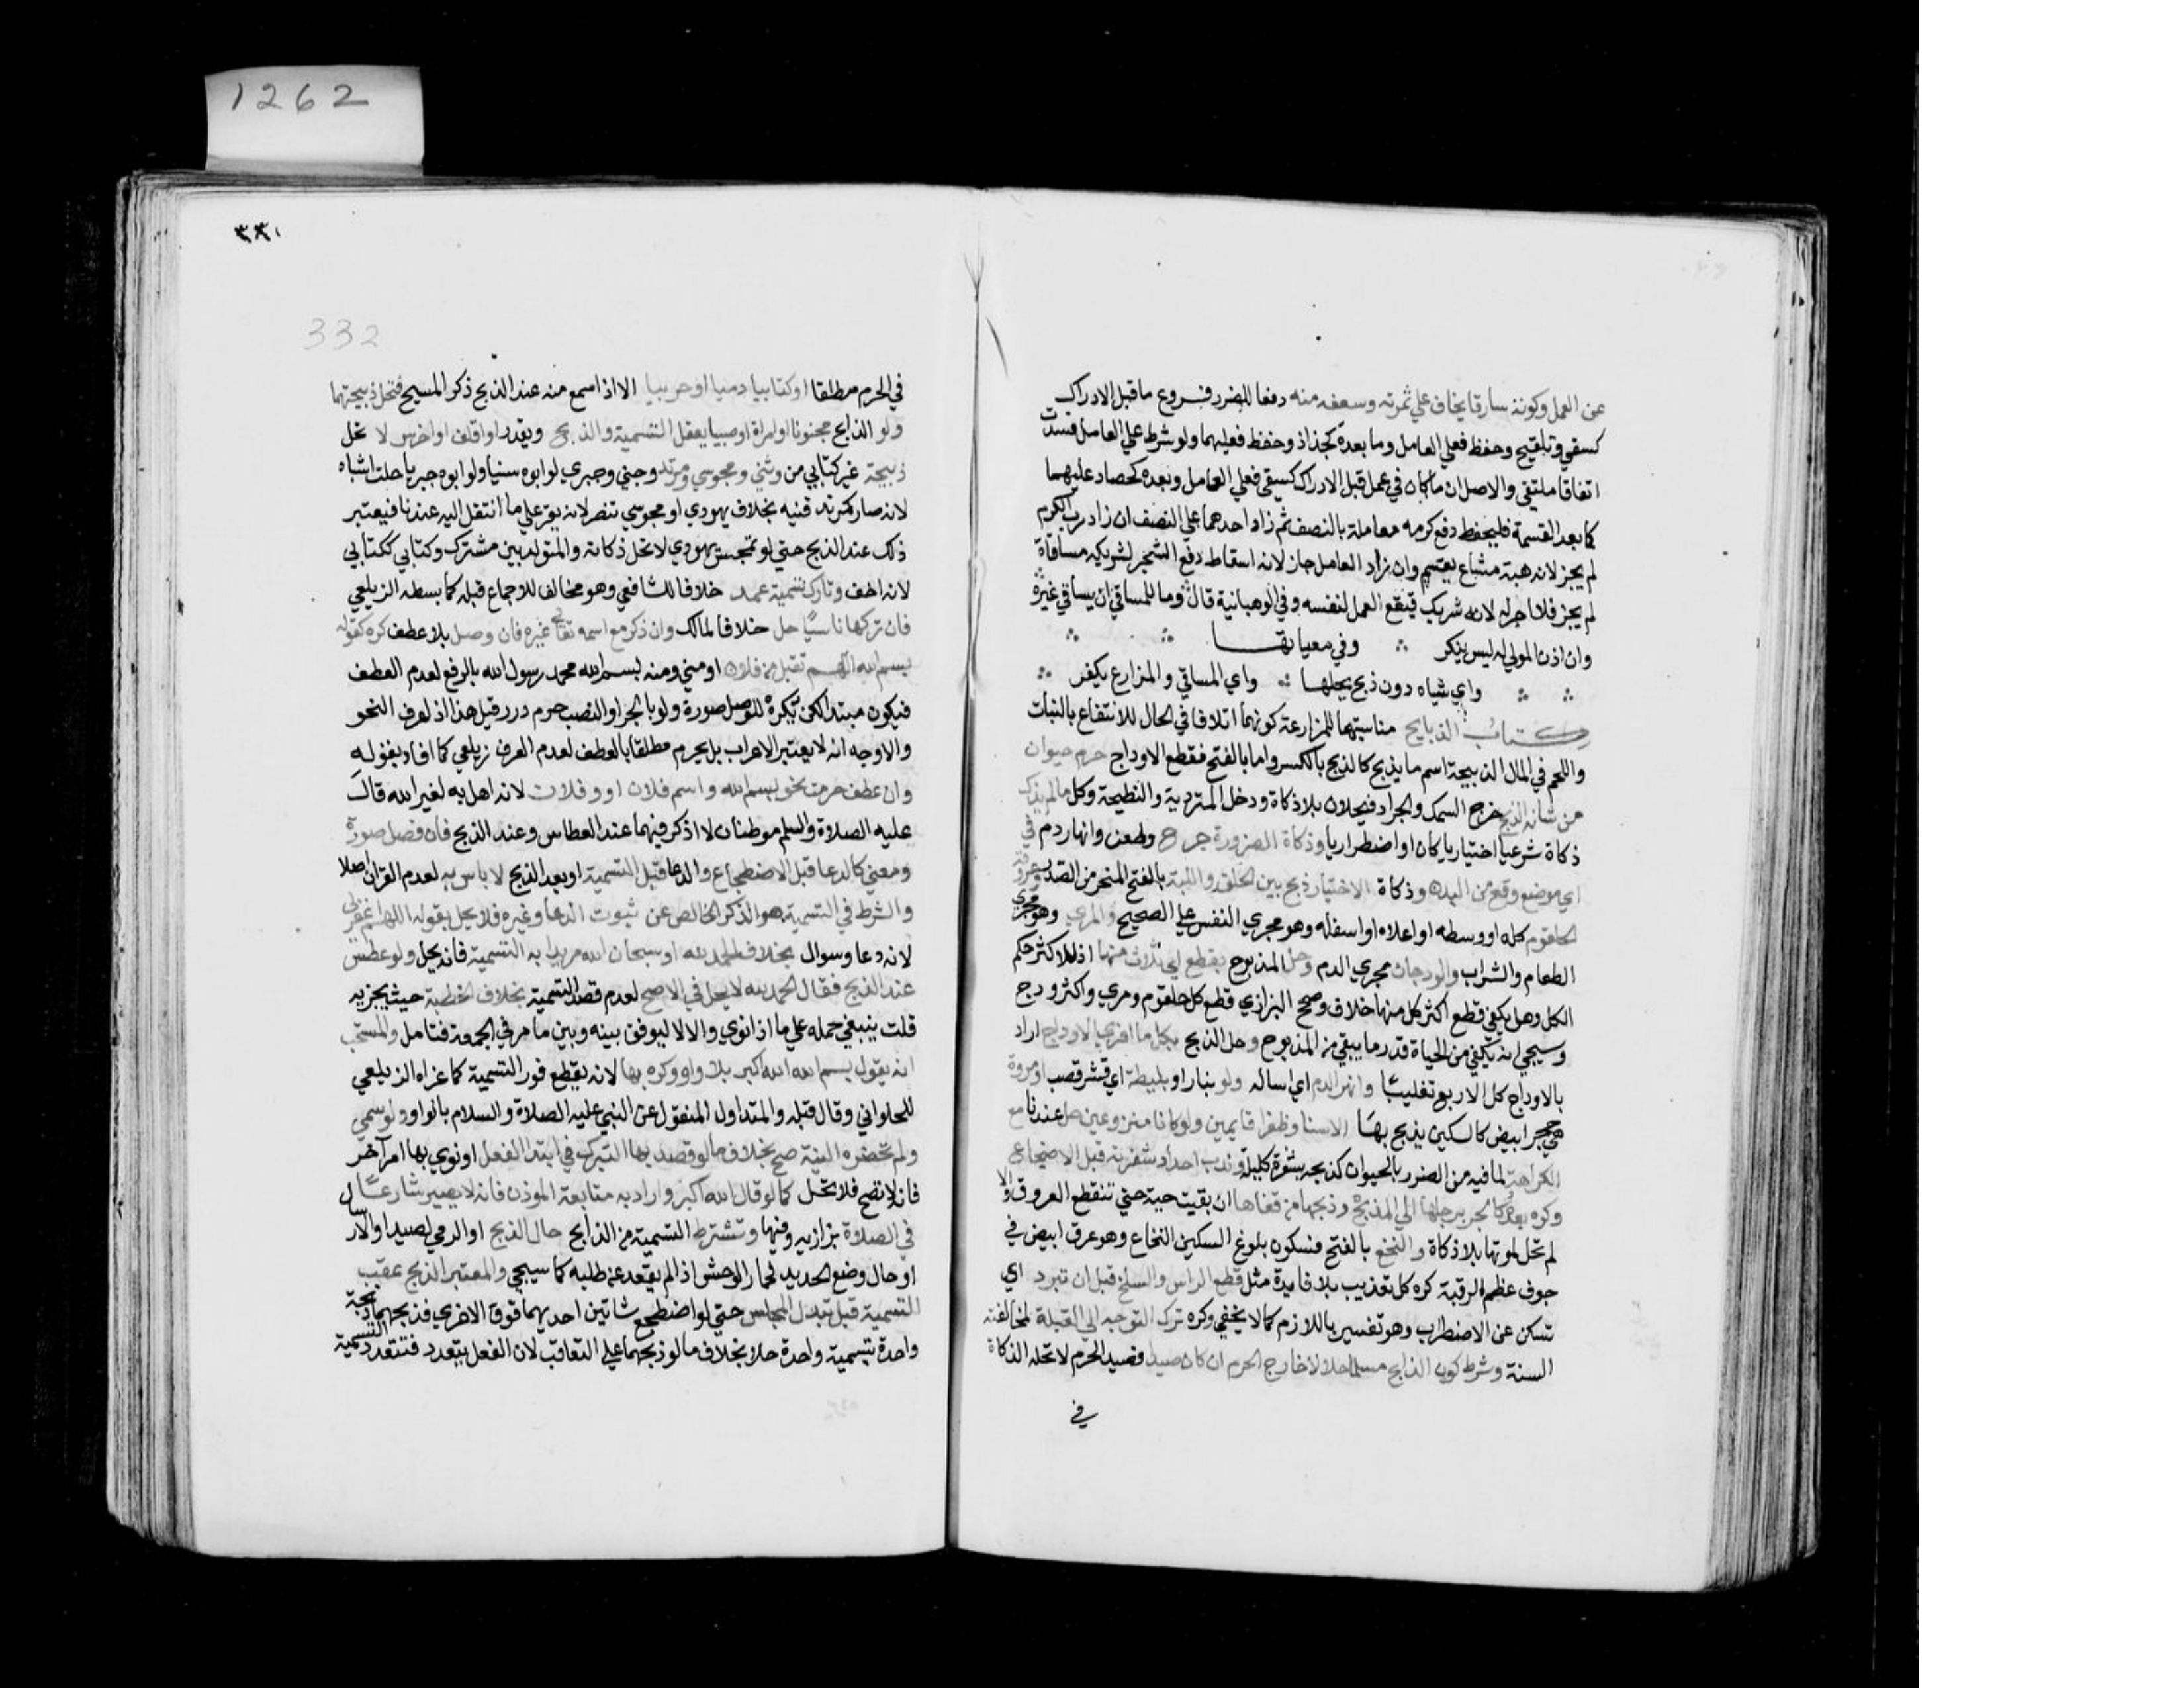 1262
عن العمل وكونه سارقا يخاف علي ثمرته وسعفه منه دفعا للضرر فروع ما قبل الادراك
كسقي وتلقيح وحفظ فعلي العامل وما بعده كجذاذ وحفظ فعليهما ولو شرط علي العامل فسدت
اتفاقا ملتقي والاصل ان ما كان في عمل قبل الادراك كسقي فعلي العامل وبعده كحصاد عليهما
كما بعد القسمة فليحفظ دفع كرمه معاملة بالنصف ثم زاد احدهما علي النصف ان زاد رب الكرم
لم يجز لانه هبة مشاع يقسم وان زاد العامل جاز لانه اسقاط دفع الشجر لشريكه مساقاة
لم يجز فلا اجر له لانه شريك فيقع العمل لنفسه وفي الوهبانية قال وما للمساقي ان يساقي غيره
وان اذن المولي له ليس ينكر وفي معياتها
واي شياه دون ذبح يحلها واي المساقي والمزارع يكفر
كتاب الذبايح مناسبتها للمزارعة كونهما اتلافا في الحال للانتفاع بالنبات
واللحم في المال الذبيحة اسم ما يذبح كالذبح بالكسر واما بالفتح فقطع الاوداج حرم حيوان
من شانه الذبح خرج السمك والجراد فيحلان بلا ذكاة ودخل المتردية والنطيحة وكل ما لم يذك
ذكاة شرعيا اختياريا كان او اضطراريا وذكاة الضرورة جرح وطعن وانهار دم في
اي موضع وقع من البدن وذكاة الاختيار ذبح بين الحلق واللبة بالفتح المنحر من الصدر وعروقه
الحلقوم كله او وسطه او اعلاه او اسفله وهو مجري النفس علي الصحيح والمري وهو مجري
الطعام والشراب والودجان مجري الدم وحل المذبوح بقطع اي ثلاث منها اذ للاكثر حكم
الكل وهل يكفي قطع اكثر كل منها خلاف وصحح البزازي قطع كل حلقوم ومري واكثر ودج
وسيجي انه يكفي من الحياة قدر ما يبقي من المذبوح وحل الذبح بكل ما افري الاوداج اراد
بالاوداج كل الاربع تغليبا وانهر الدم اي اساله ولو بنار او بليطة اي قشر قصب او مروة
هي حجر ابيض كالسكين يذبح بها الا سنا وظفرا قايمين ولو كانا منزوعين حل عندنا مع
الكراهة لما فيه من الضرر بالحيوان كذبحه بشفرة كليلة وندب احداد شفرته قبل الاضجاع
وكره بعده كالجر برجلها الي المذبح وذبحها من قفاها ان بقيت حية حتي تنقطع العروق والا
لم تحل لموتها بلا ذكاة والنخع بالفتح فسكون بلوغ السكين النخاع وهو عرق ابيض في
جوف عظم الرقبة كره كل تعذيب بلا فايدة مثل قطع الراس والسلخ قبل ان تبرد اي
تسكن عن الاضطراب وهو تفسير باللازم كما لا يخفي وكره ترك التوجه الي القبلة لمخالفته
السنة وشرط كون الذابح مسلما حلالا خارج الحرم ان كان صيدا فصيد الحرم لا تحله الذكاة
في
٣٣١
332
في الحرم مطلقا او كتابيا ذميا او حربيا الا اذا سمع منه عند الذبح ذكر المسيح فتحل ذبيحتهما
ولو الذابح مجنونا او امراة او صبيا يعقل التسمية والذبح ويقدر او اقلف او اخرس لا تحل
ذبيحة غير كتابي من وثني ومجوسي ومرتد وجني وجبري لو ابوه سنيا ولو ابوه جبريا حلت اشباه
لانه صار كمرتد قنيه بخلاف يهودي او مجوسي تنصر لانه يقر علي ما انتقل اليه عندنا فيعتبر
ذلك عند الذبح حتي لو تمجس يهودي لا تحل ذكاته والمتولد بين مشرك وكتابي ككتابي
لانه اخف وتارك تسمية عمدا خلافا للشافعي وهو مخالف للاجماع قبله كما بسطه الزيلعي
فان تركها ناسيا حل خلافا لمالك وان ذكر مع اسمه تعالي غيره فان وصل بلا عطف كره كقوله
بسم الله اللهم تقبل من فلان او مني ومنه بسم الله محمد رسول الله بالرفع لعدم العطف
فيكون مبتدا لكن يكره للوصل صورة ولو بالجر او النصب حرم درر قيل هذا اذا عرف النحو
والاوجه انه لا يعتبر الاعراب بل يحرم مطلقا بالعطف لعدم العرف زيلعي كما افاده بقوله
وان عطف حرمت نحو بسم الله واسم فلان او وفلان لانه اهل به لغير الله قال
عليه الصلاة والسلم موطنان لا اذكر فيهما عند العطاس وعند الذبح فان فصل صورة
ومعني كالدعا قبل الاضطجاع والدعا قبل التسمية او بعد الذبح لا باس به لعدم القران اصلا
والشرط في التسمية هو الذكر الخالص عن ثبوت الدعا وغيره فلا يحل بقوله اللهم اغفر لي
لانه دعا وسوال بخلاف الحمد لله او سبحان الله مريدا به التسمية فانه يحل ولو عطس
عند الذبح فقال الحمد لله لا يحل في الاصح لعدم قصد التسمية بخلاف الخطبة حيث يجزيه
قلت ينبغي حمله علي ما اذا نوي والا لا ليوفق بينه وبين ما مر في الجمعة فتامل والمستحب
انه يقول بسم الله الله اكبر بلا واو وكره بها لانه يقطع فور التسمية كما عزاه الزيلعي
للحلواني وقال قبله والمتداول المنقول عن النبي عليه الصلاة والسلام بالواو ولو سمي
ولم تحضره النية صح بخلاف ما لو قصد بها التبرك في ابتدا الفعل او نوي بها امرا اخر
فانه لا تصح فلا تحل كما لو قال الله اكبر واراد به متابعة الموذن فانه لا يصير شارعا
في الصلاة بزازيه وفيها وتشترط التسمية من الذابح حال الذبح او الرمي لصيد او الارسال
او حال وضع الحديد لحمار الوحش اذا لم يقعد عن طلبه كما سيجي والمعتبر الذبح عقب
التسمية قبل تبدل المجلس حتي لو اضطجع شاتين احديهما فوق الاخري فذبحهما ذبحة
واحدة بتسمية واحدة حلا بخلاف ما لو ذبحهما علي التعاقب لان الفعل يتعدد فتتعدد التسمية